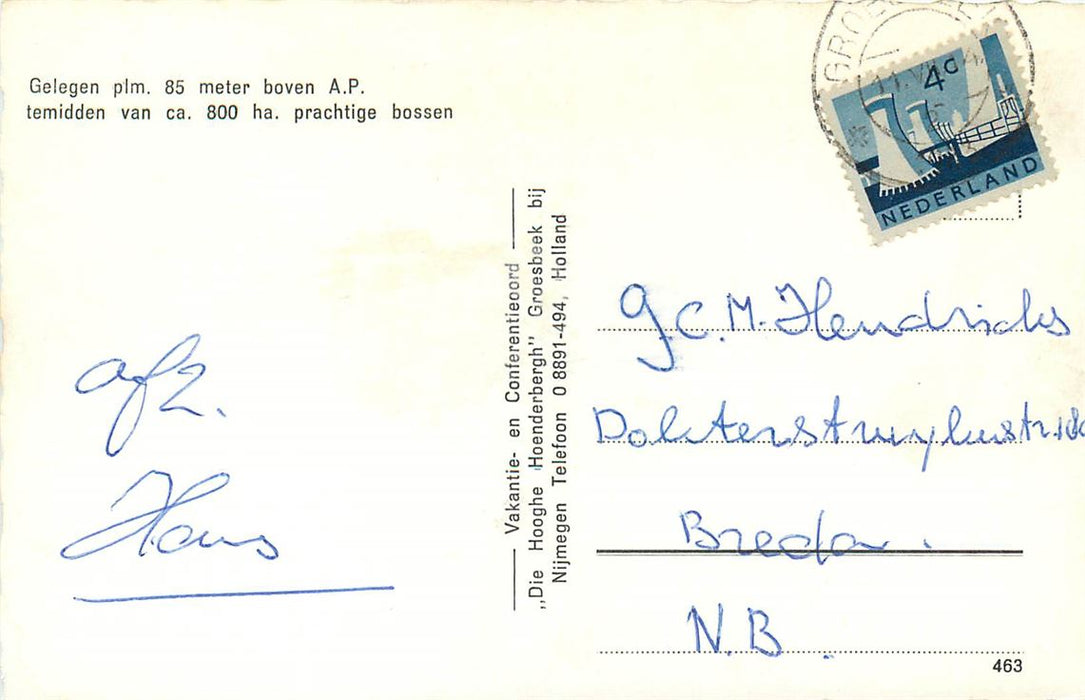 Gelegen plm. 85 meter boven A.P.
temidden van ca. 800 ha. prachtige bossen
afz.
Hans
Vakantie- en Conferentieoord
„Die Hooghe Hoenderbergh" Groesbeek bij
Nijmegen Telefoon 0 8891-494, Holland
4c
NEDERLAND
G.C.M. Hendricks
Breda.
N.B.
463